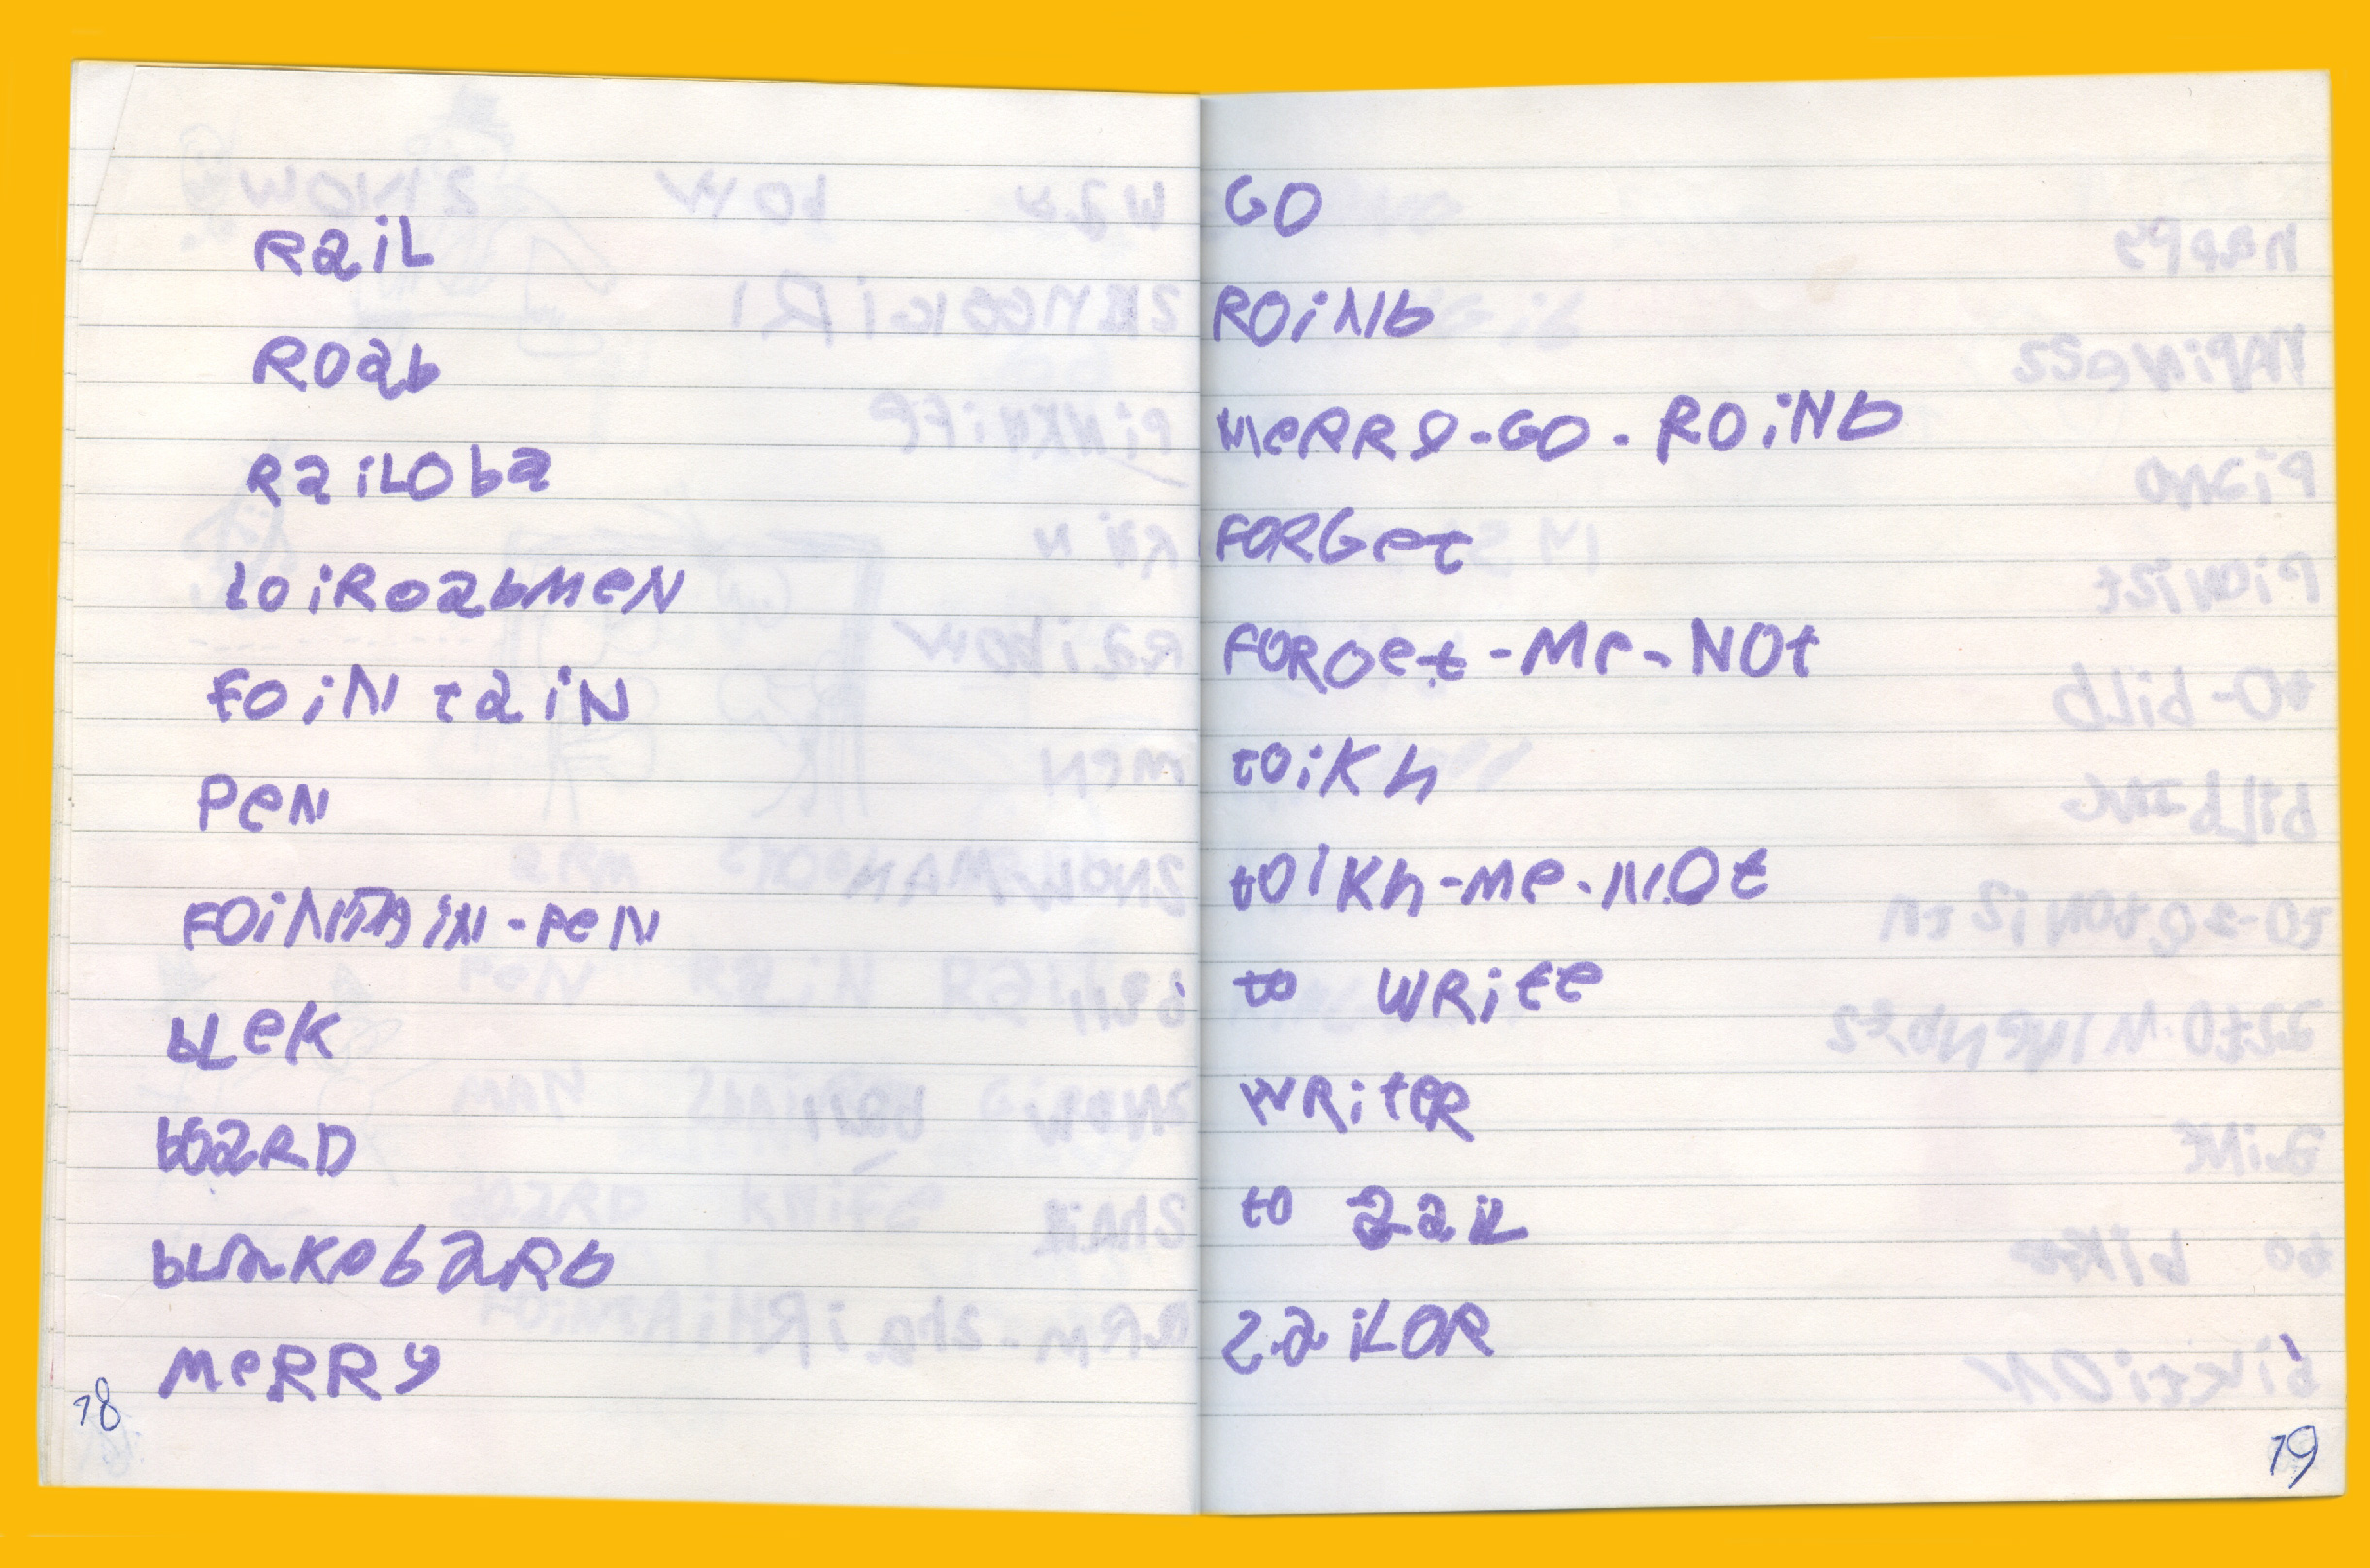 RaiL
ROab
RaiLOba
loiRoabmeN
FOiNtaiN
PeN
FOiNTAiN-PeN
bLeK
boaRD
blaKebaRb
MeRRy
18
GO
ROiNb
MeRRy-GO-ROiNb
FORGet
FOROet-Me-NOt
tOiKh
tOiKh-me-NOt
to WRite
WRiteR
to SaiL
SaiLOR
19